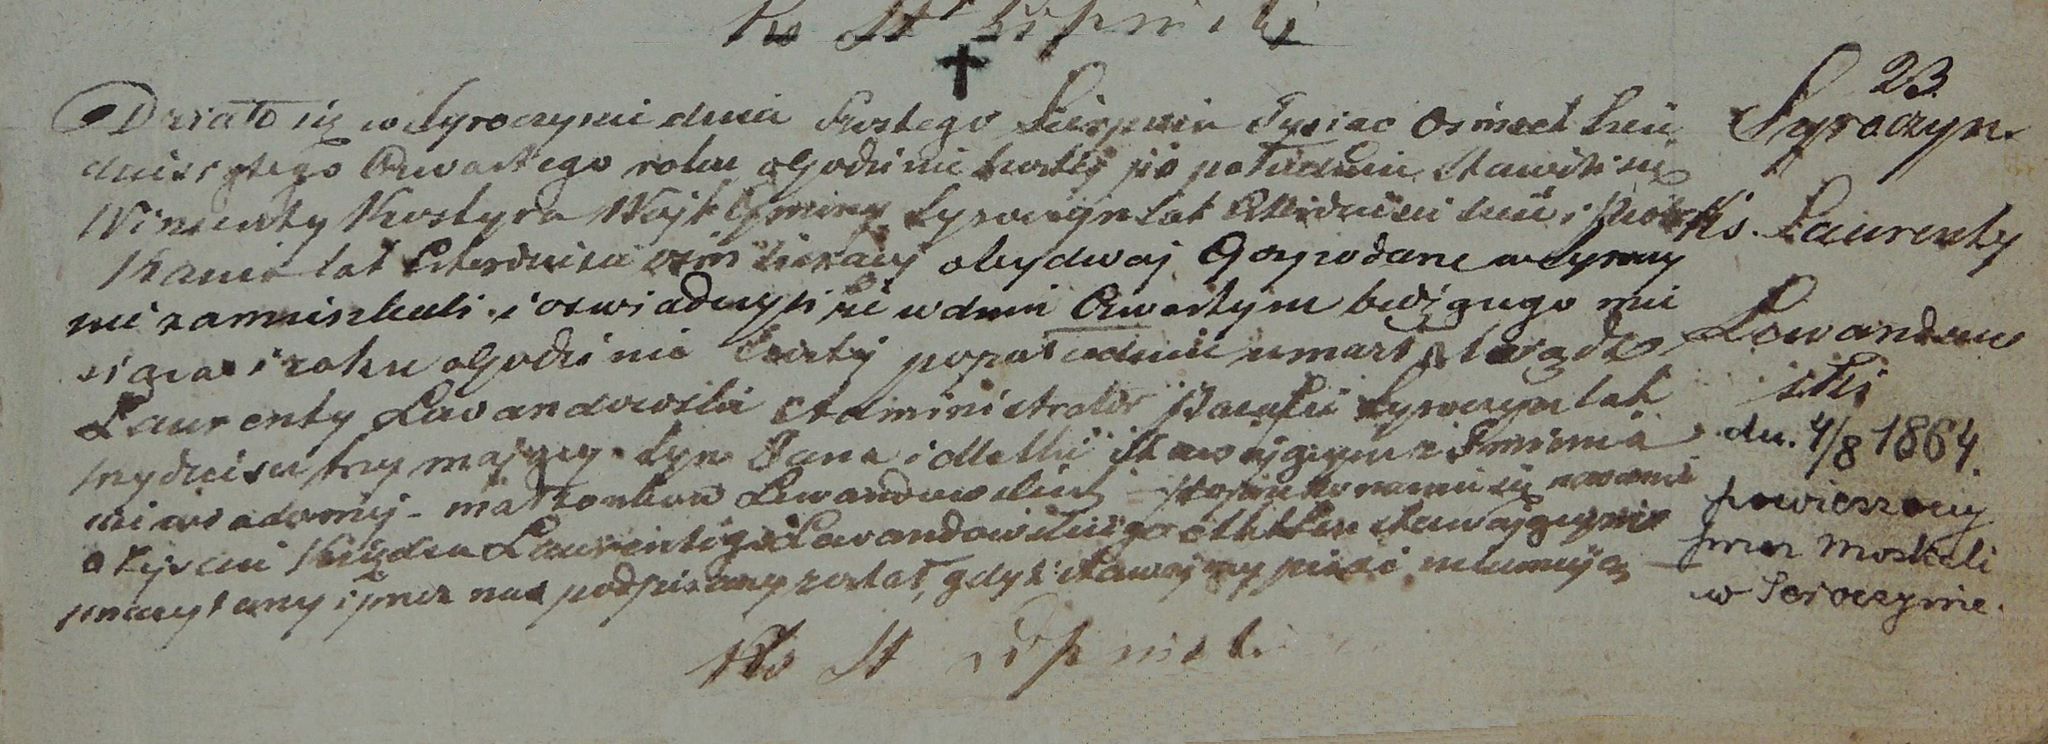 Ks St Lipinski
23.
Syroczyn
Działo się w Syroczynie dnia Szostego Sierpnia Tysiąc Osmset Sześ
dziesiątego Czwartego roku o Godzinie szostej po południu. Stawili się
Wincenty Kostyra Wojt Gminy Syroczyn lat Czterdzieści sześć i Piotr
Kania lat Czterdzieści ośm liczący obydwaj Gospodarze w Syroczy
nie zamieszkali i oswiadczyli że w dniu Czwartym bieżącego mie
siąca i roku o Godzinie szostej popołudniu umarł Ksiądz
Laurenty Lewandowski Administrator Parafii Syroczyn lat
trzydzieści trzy mający Syn Jana i Matki Stawającym z Imienia
niewiadomej - małżonków Lewandowskich - po przekonaniu się naocznie
o zejściu Księdza Laurentego Lewandowskiego Akt ten stawającym
przeczytany i przez nas podpisany został, gdyż stawający pisać nieumieją
Ks St Lipinski
Ks. Laurenty
Lewandow
ski
dn. 4/8 1864.
powieszony
przez Moskali
w Seroczynie.